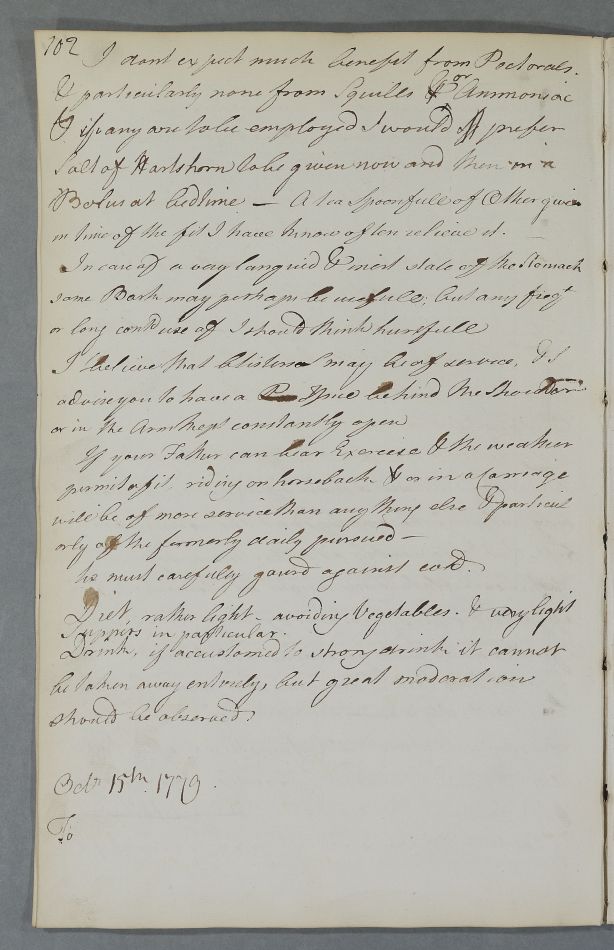 102
I dont expect much benefit from Pectorals.
& particularly none from Squills or Ammoniac
& if any are to be employed I would prefer
Salt of Hartshorn to be given now and then in a
Bolus at bedtime — A teaspoonfull of Æther given
in time of the fit I have know often relieve it. —
In case of a very languid & inert state of the Stomach
some Bark may perhaps be usefull; but any freqt
or long contd use of I should think hurtfull
I believe that blisters may be of service, & I
advise you to have a Issue behind the Shoulder
or in the Arm kept constantly open
If your Father can bear Exercise & the weather
permits of it, riding on horseback & or in a Carriage
will be of more service than any thing else & particul
arly as the formerly daily pursued —
he must carefully gaurd against cold.
Diet, rather light - avoiding Vegetables. & very light
Suppers in particular.
Drink, if accustomed to strong drink it cannot
be taken away entirely, but great moderation
should be observed
Octr 15th. 1779.
To